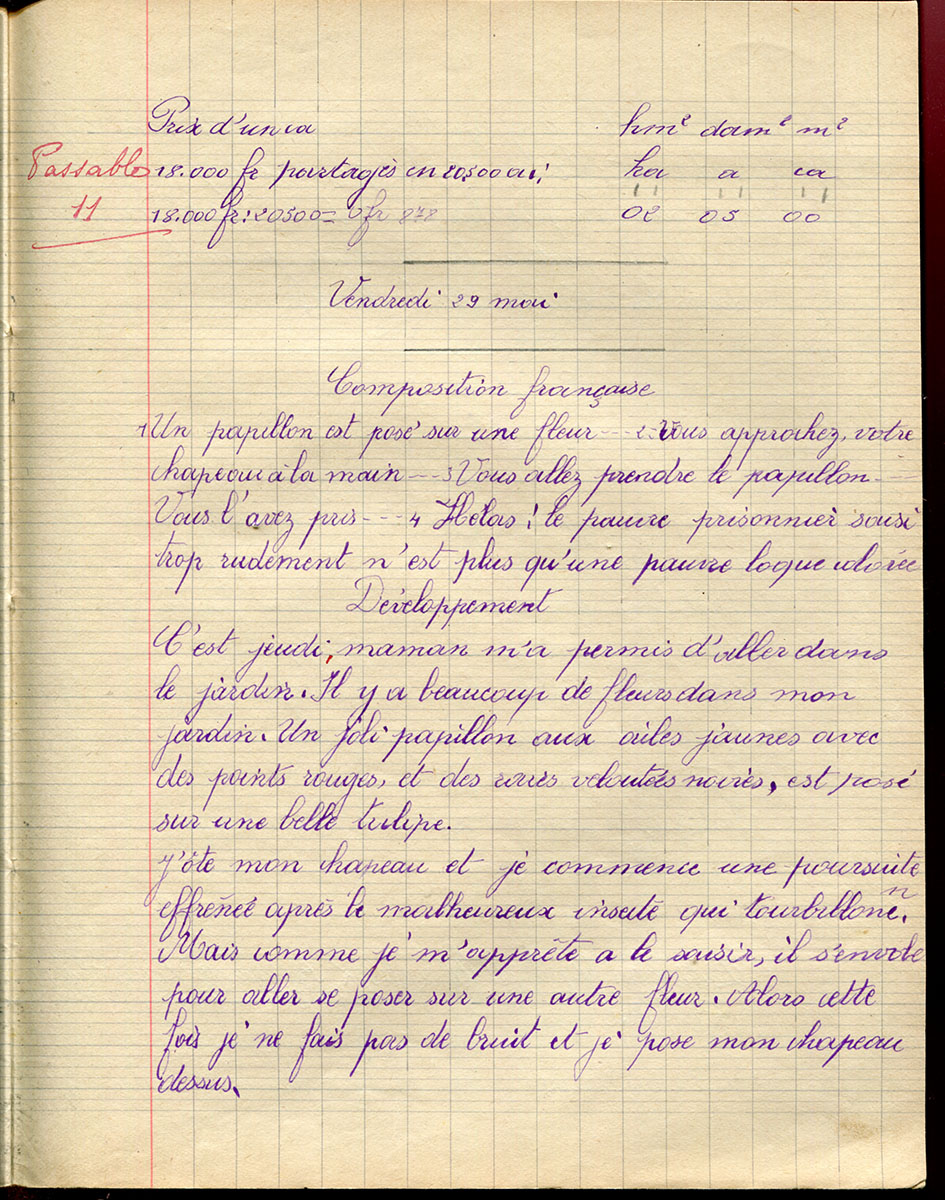 Prix d'un ca
hm² dam² m²
Passable
18.000 fr partagés en 20500 ca;
ha a ca
11
18.000 fr : 20500 = 0 fr 878
02 05 00
Vendredi 29 mai
Composition française
1 Un papillon est posé sur une fleur --- 2 -- Vous approchez, votre
chapeau à la main --- 3 Vous allez prendre le papillon ---
Vous l'avez pris --- 4 Hélas ! le pauvre prisonnier saisi
trop rudement n'est plus qu'une pauvre loque colorée
Développement
C'est jeudi, maman m'a permis d'aller dans
le jardin. Il y a beaucoup de fleurs dans mon
jardin. Un joli papillon aux ailes jaunes avec
des points rouges, et des raies veloutées noires, est posé
sur une belle tulipe.
J'ôte mon chapeau et je commence une poursuite
effrénée après le malheureux insecte qui tourbillone.
n
Mais comme je m'apprête a le saisir, il s'envole
pour aller se poser sur une autre fleur. Alors cette
fois je ne fais pas de bruit et je pose mon chapeau
dessus.